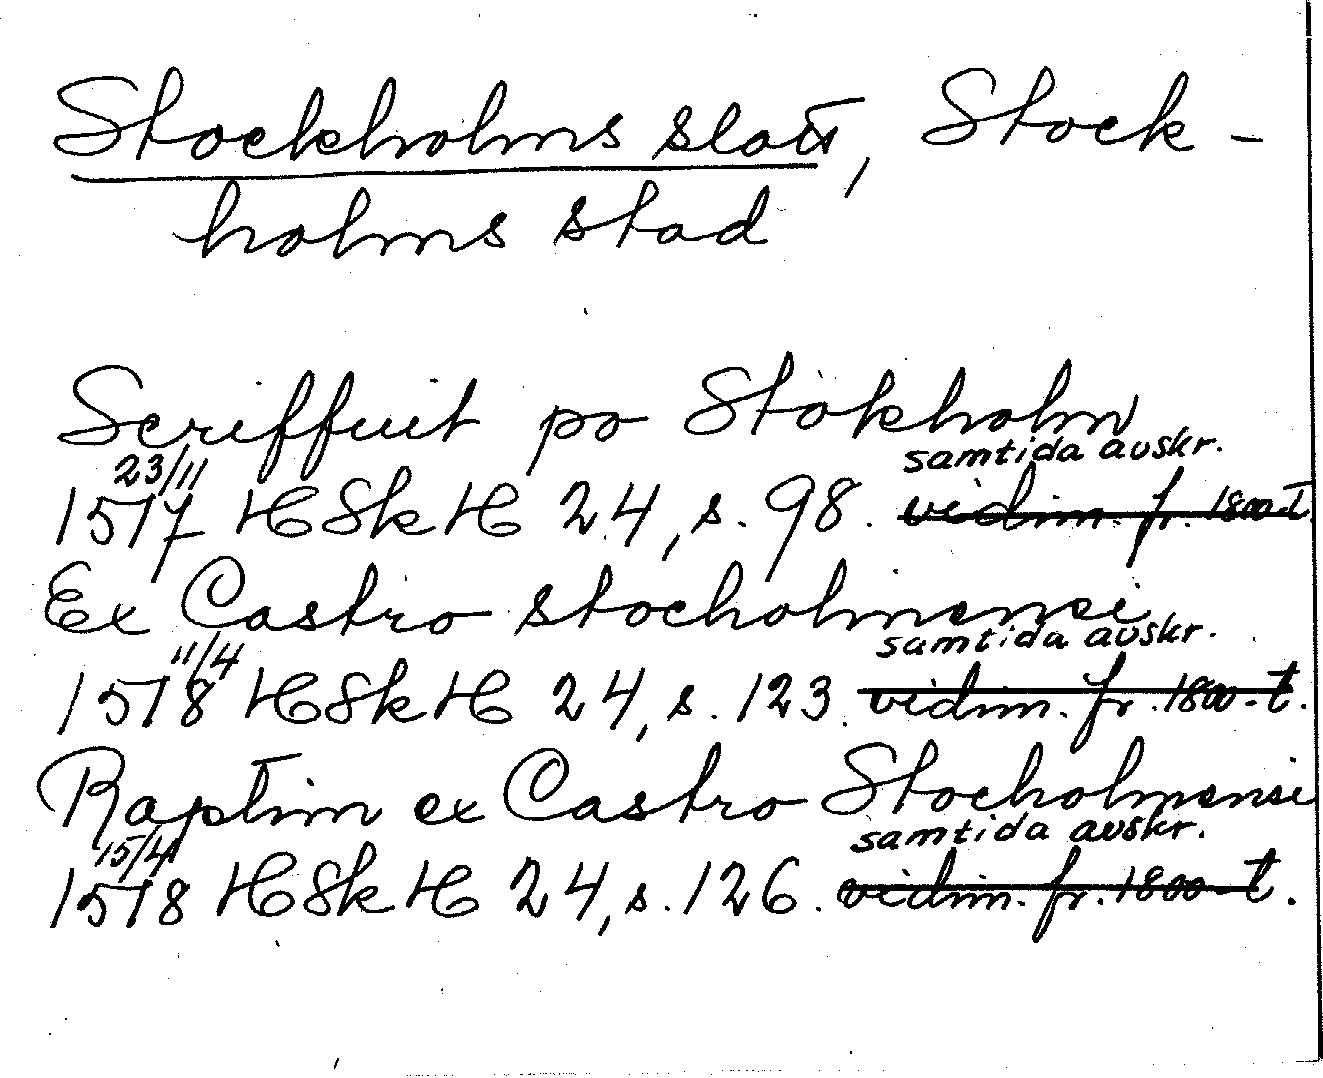 Stockholms slott, Stock-
holms stad
Scriffuit po Stokholm
23/11 samtida avskr.
1517 HSkH 24, s. 98. vidim. fr. 1800-t
Ex Castro stocholmensi
11/4 samtida avskr.
1518 HSkH 24, s. 123. vidim. fr. 1800-t.
Raptim ex Castro Stocholmensi
15/4 samtida avskr.
1518 HSkH 24, s. 126. vidim. fr. 1800-t.